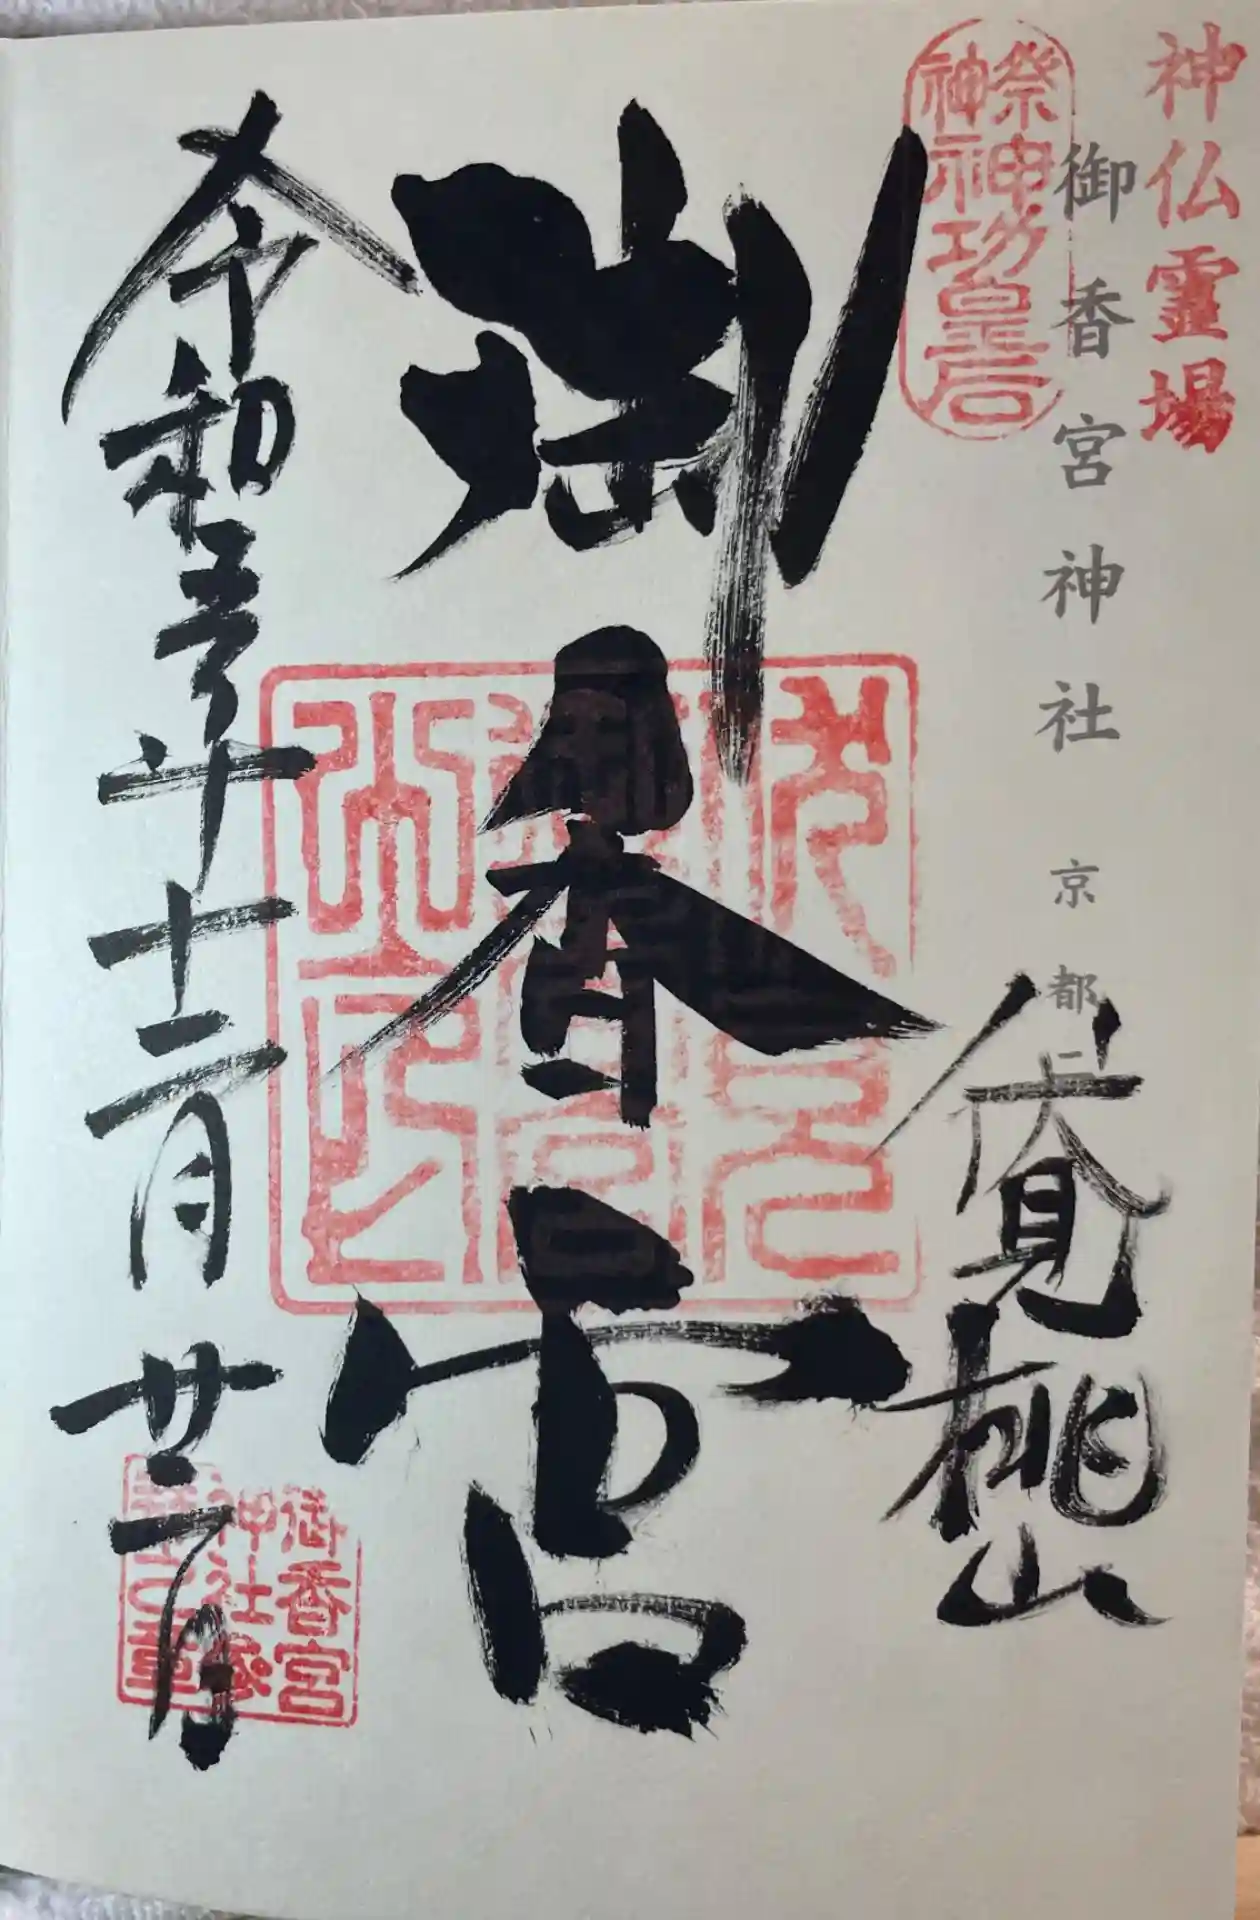 神仏霊場
御香宮神社 京都 二
祭神 神功皇后
伏見桃山
御香宮
令和五年十二月廿二日
御香宮
神社